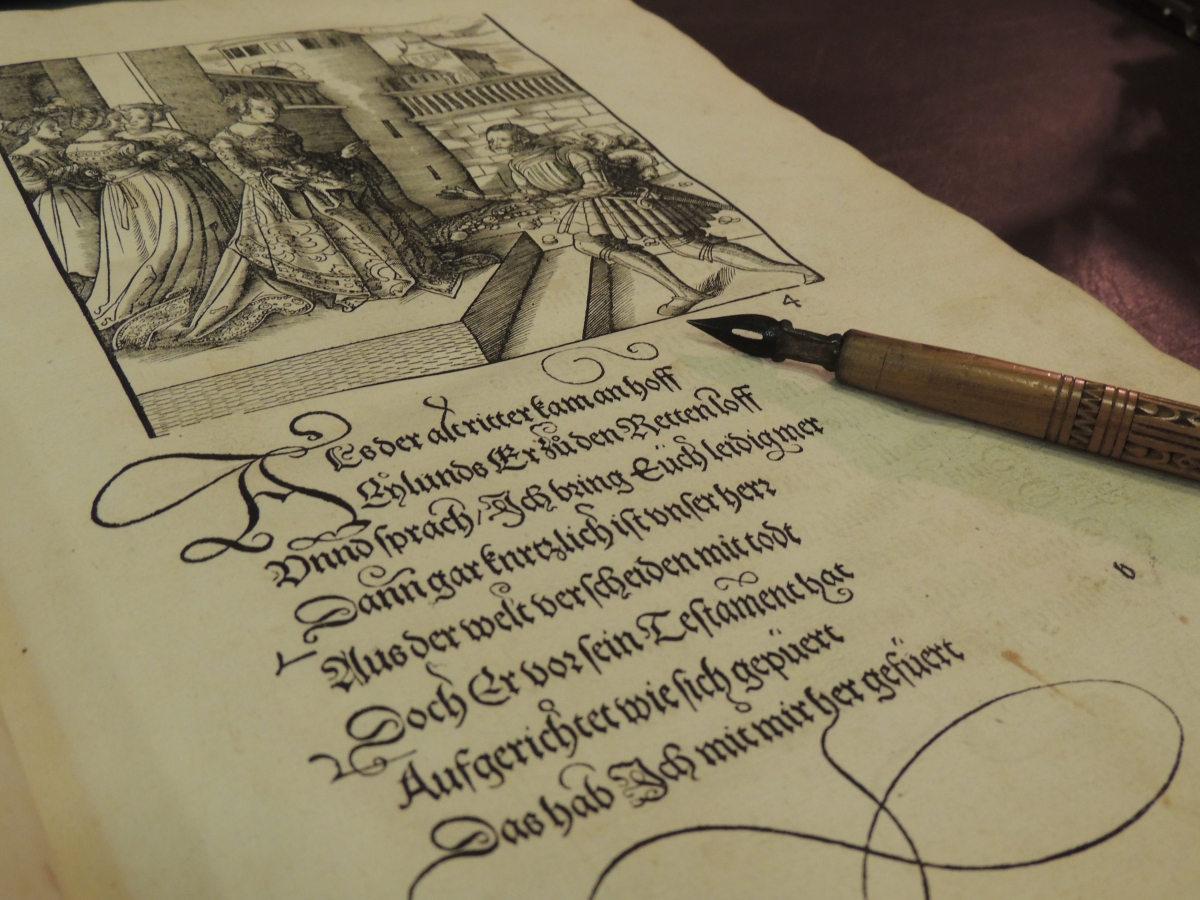 4
ALs der alt ritter kam an hoff
Eylunds Er zů den Retten loff
Vnnd sprach / Ich bring Eüch leidig mer
Dann gar kurtzlich ist vnser herr
Aus der welt verscheiden mit todt
Doch Er vor sein Testament hat
Aufgerichtet wie sich gepüert
Das hab Ich mit mir her gefüert
b